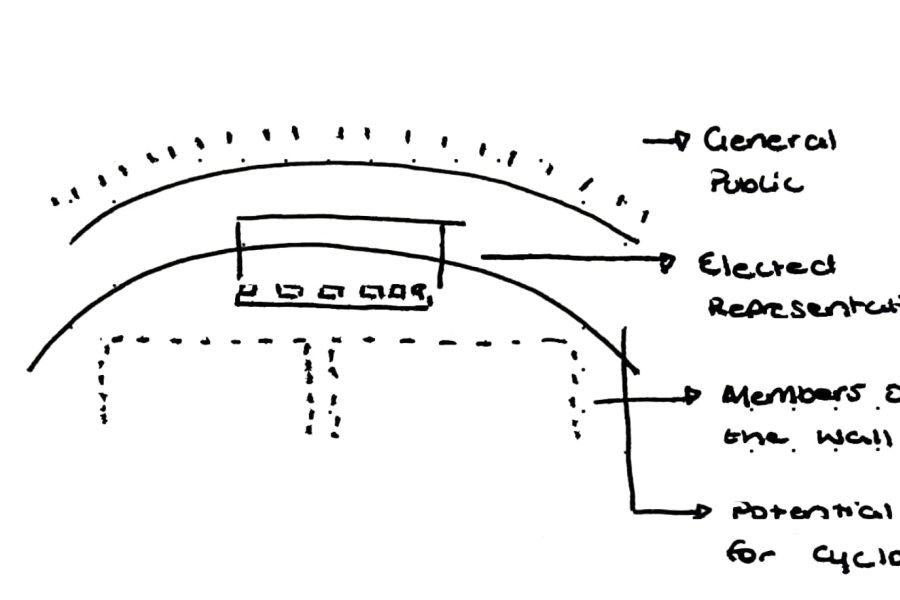 General
Public
Elected
Representati
Members o
the wall
Potential
for cyclo